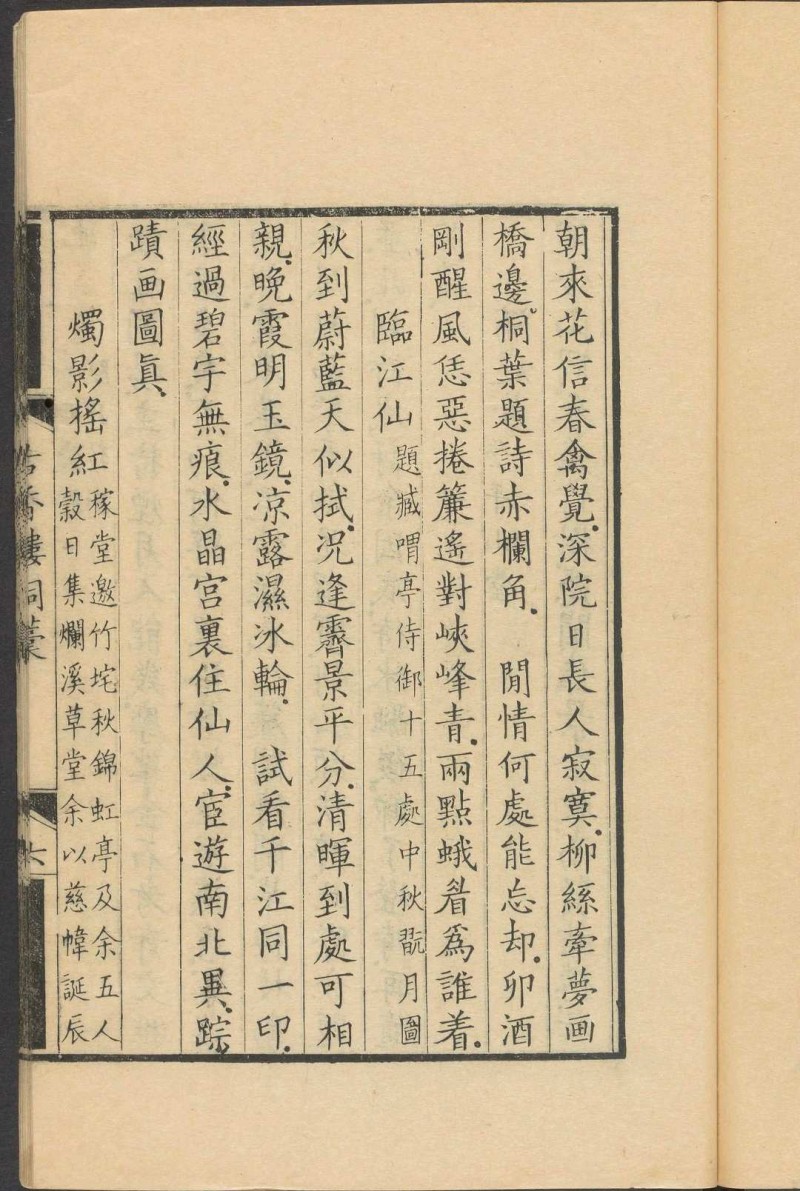 朝來花信春禽覺深院日長人寂寞柳絲牽夢画
橋邊桐葉題詩赤欄角　閒情何處能忘却卯酒
剛醒風恁惡捲簾遙對峽峰青兩點蛾眉爲誰着
臨江仙　題臧喟亭侍御十五處中秋翫月圖
秋到蔚藍天似拭況逢霽景平分清暉到處可相
親晚霞明玉鏡凉露濕冰輪　試看千江同一印
經過碧宇無痕水晶宮裏住仙人宦遊南北異踪
蹟画圖眞
燭影搖紅
稼堂邀竹垞秋錦虹亭及余五人
穀日集爛溪草堂余以慈幃誕辰
古香樓詞藳
六